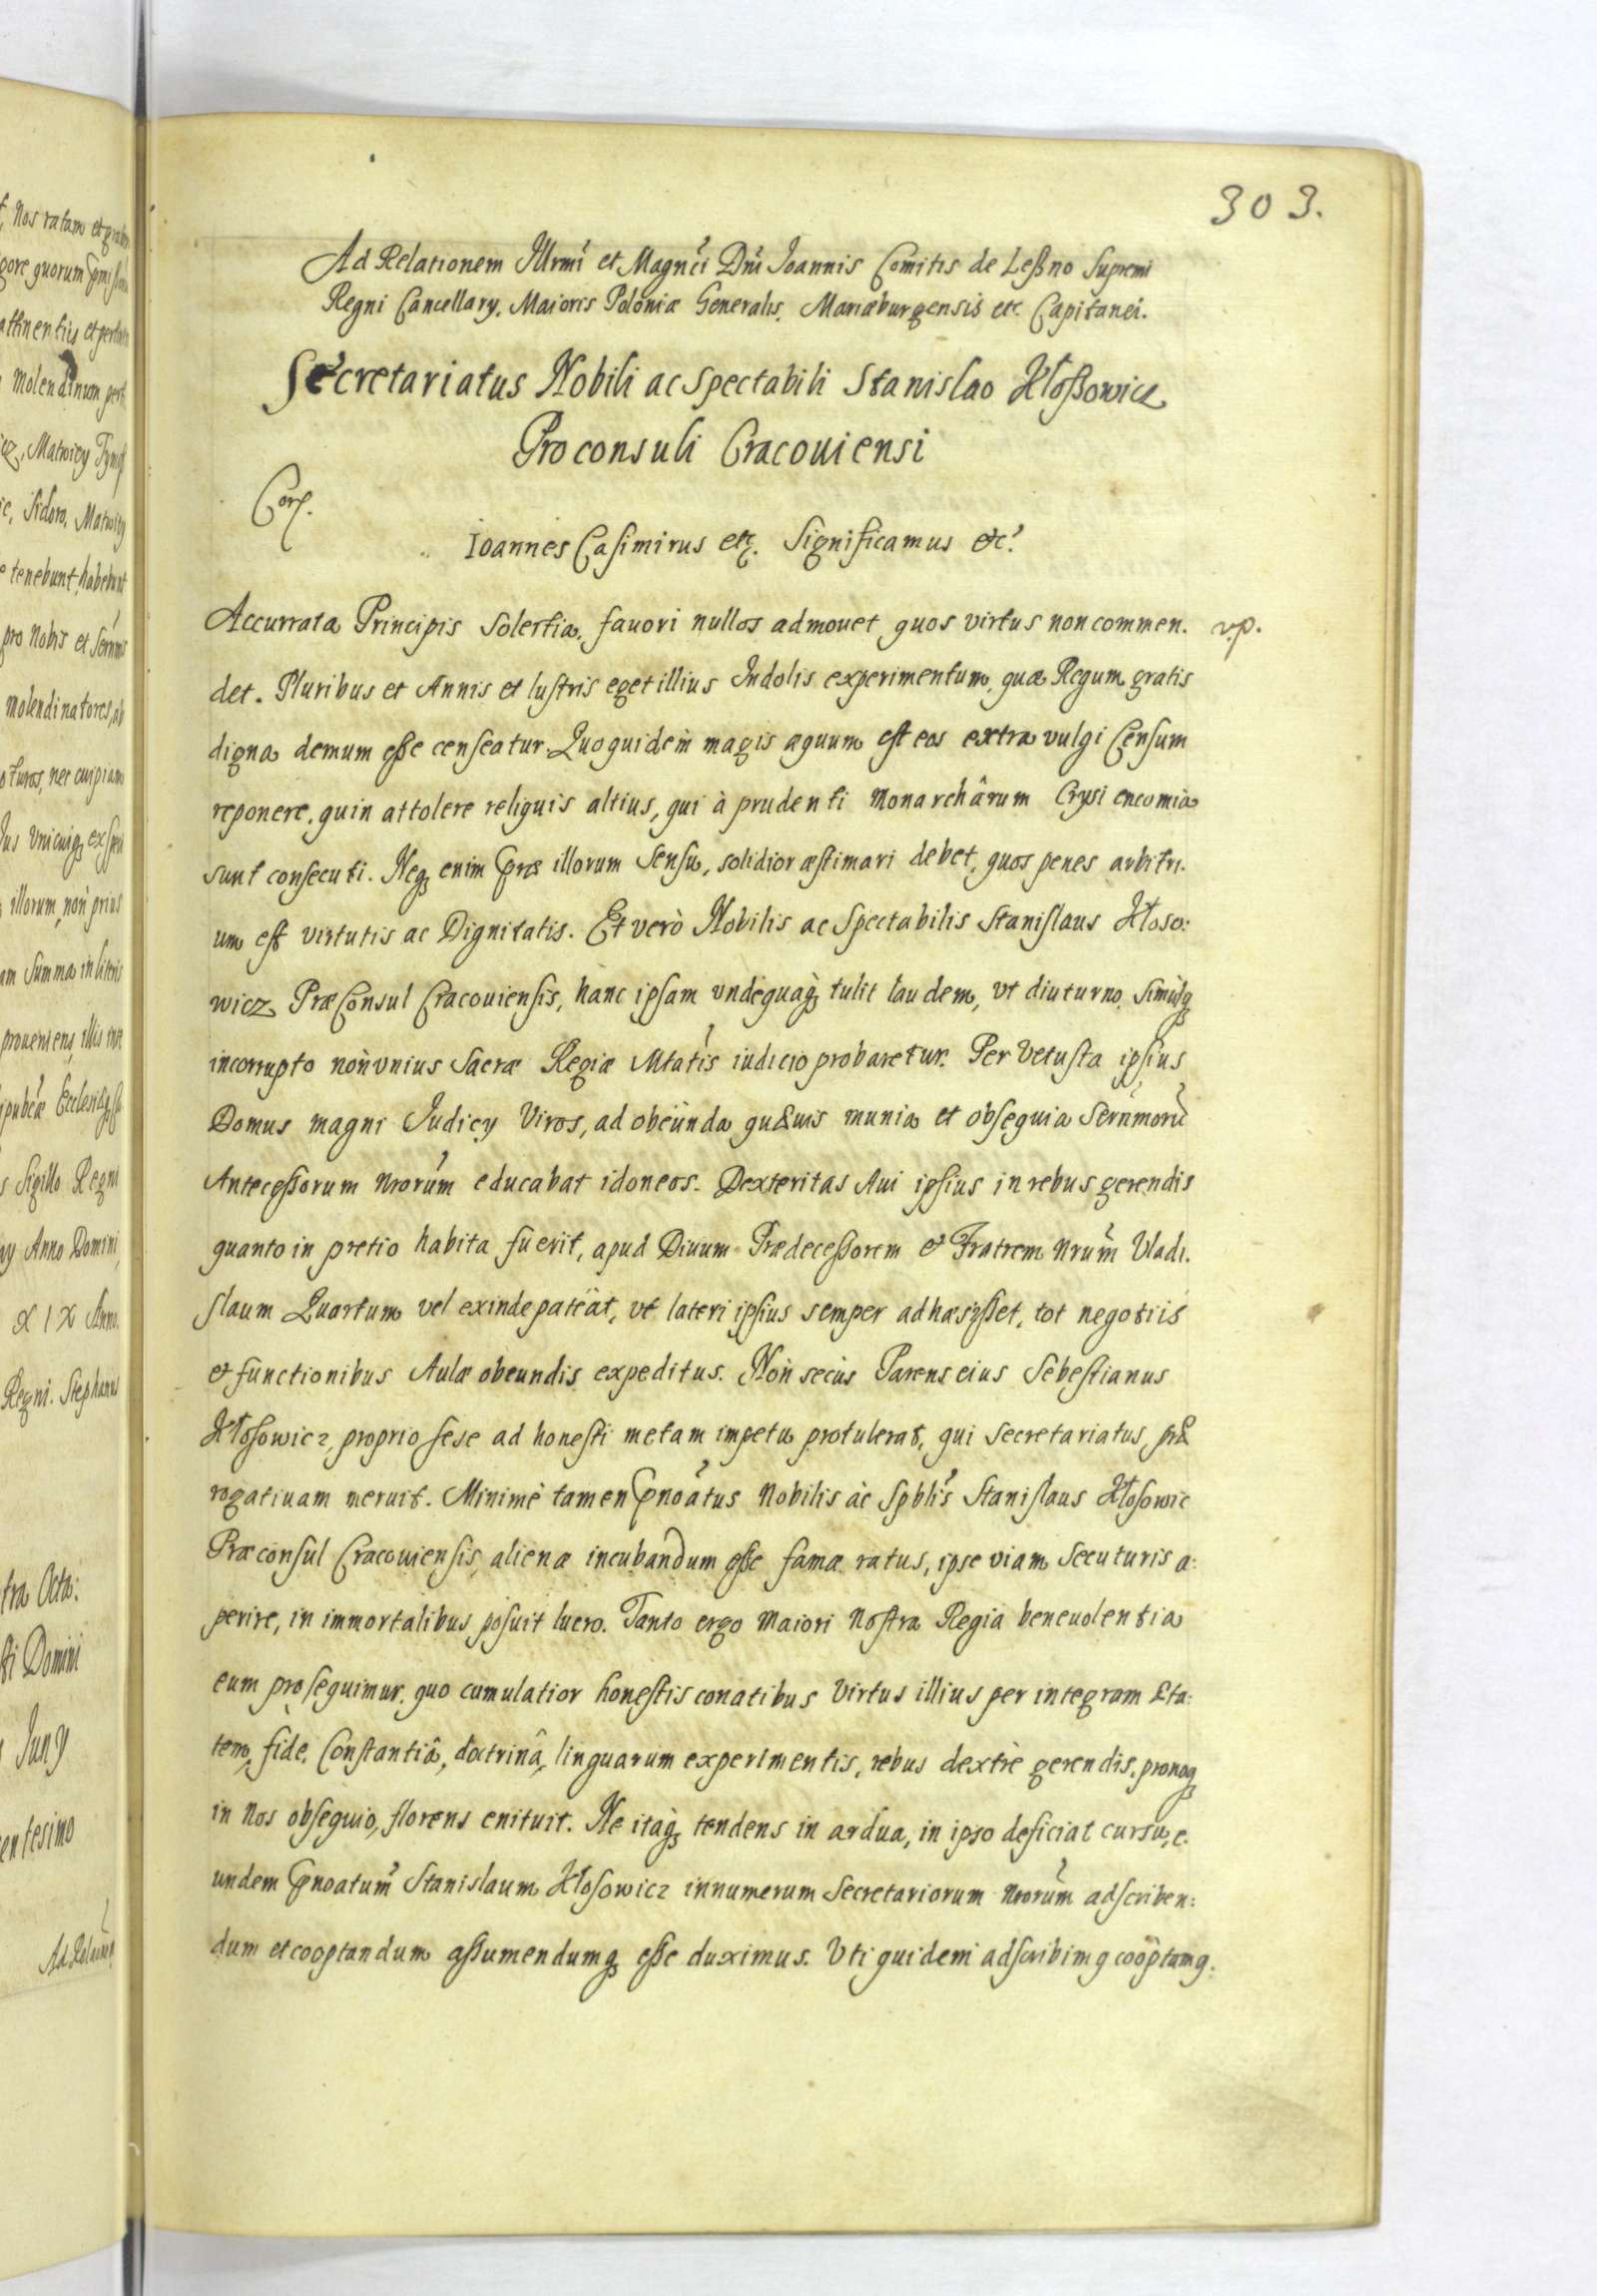 303.
Ad Relationem Illrmi et Magnci Dni Ioannis Comitis de Leßno Supremi
Regni Cancellary. Maioris Poloniæ Generalis, Mariæburgensis etc Capitanei.
Secretariatus Nobili ac Spectabili Stanislao Kłoßowicz
Proconsuli Cracouiensi
Corr.
Ioannes Casimirus etc. Significamus etc.
Accurrata Principis Solertia, fauori nullos admouet quos virtus non commen. vp.
det. Pluribus et Annis et lustris eget illius Indolis experimentum, quæ Regum gratis
digna demum esse censeatur. Quo quidem magis æquum est eos extra vulgi Censum
reponere, quin attolere reliquis altius, qui à prudenti Monarchârum Crysi encomia
sunt consecuti. Neq enim præ illorum Sensu, solidior æstimari debet, quos penes arbitri.
um est virtutis ac Dignitatis. Et verò Nobilis ac Spectabilis Stanislaus Kłoso:
wicz PræConsul Cracouiensis, hanc ipsam undèquaq tulit laudem, vt diuturno Simulq
incorrupto non vnius Sacræ Regiæ Mtatis iudicio probaretur. Per Vetusta ipsius
Domus magni Iudicy Viros, ad obeunda quæuis munia et obsequia Sernmorum
Antecessorum Nrorum educabat idoneos. Dexteritas Aui ipsius in rebus gerendis
quanto in pretio habita fuerit, apud Diuum Prædecessorem et Fratrem Nrum Vladi.
slaum Quartum vel exinde pateat, vt lateri ipsius semper adhæsisset, tot negotiis
et functionibus Aulæ obeundis expeditus. Non secùs Parens eius Sebestianus
Kłosowicz, proprio sese ad honesti metam impetu protulerat, qui Secretariatus præ
rogatiuam meruit. Minimè tamen pnoatus Nobilis àc Spblis Stanislaus Kłosowic
Præconsul Cracouiensis, alienæ incubandum esse famæ ratus, ipse viam Secuturis a:
perire, in immortalibus posuit lucro. Tanto ergo Maiori Nostra Regia beneuolentia
eum prosequimur, quo cumulatior honestis conatibus Virtus illius per integram Æta:
tem, fide, Constantiâ, doctrinâ, linguarum experimentis, rebus dextrè gerendis, pronoq
in Nos obsequio, florens enituit. Ne itaq tendens in ardua, in ipso deficiat cursu, e.
undem pnoatum Stanislaum Kłosowicz in numerum Secretariorum Nrorum adscriben:
dum et cooptandum assumendumq esse duximus. Vti quidem adscribimq cooptamq.